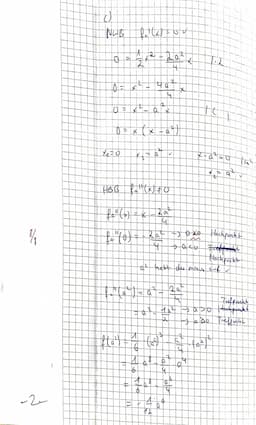 c)
NWB fa'(x) = 0 ✓
0 = 1/2 x² - 2a²/4 x |·2
0 = x² - 4a²/4 x
0 = x² - a² x
0 = x (x - a²)
x₁=0 x₂ = a² ✓ x - a² = 0 | +a²
x₂ = a² ✓
HBB fa''(x) ≠ 0
fa''(x) = x - 2a²/4
fa''(0) = - 2a²/4 → a>0 Hochpunkt
→ a<0
Hochpunkt
a² hebt das minus auf. ✓
fa''(a²) = a² - 2a²/4
Tiefpunkt
= a² - 1a²/2 → a>0
→ a<0 Tiefpunkt
f(a²) = 1/6 (a²)³ - a²/4 · (a²)²
= 1/6 a⁶ - a²/4 a⁴
= 1/6 a⁶ - a⁶/4
= - 1/12 a⁶
-2-